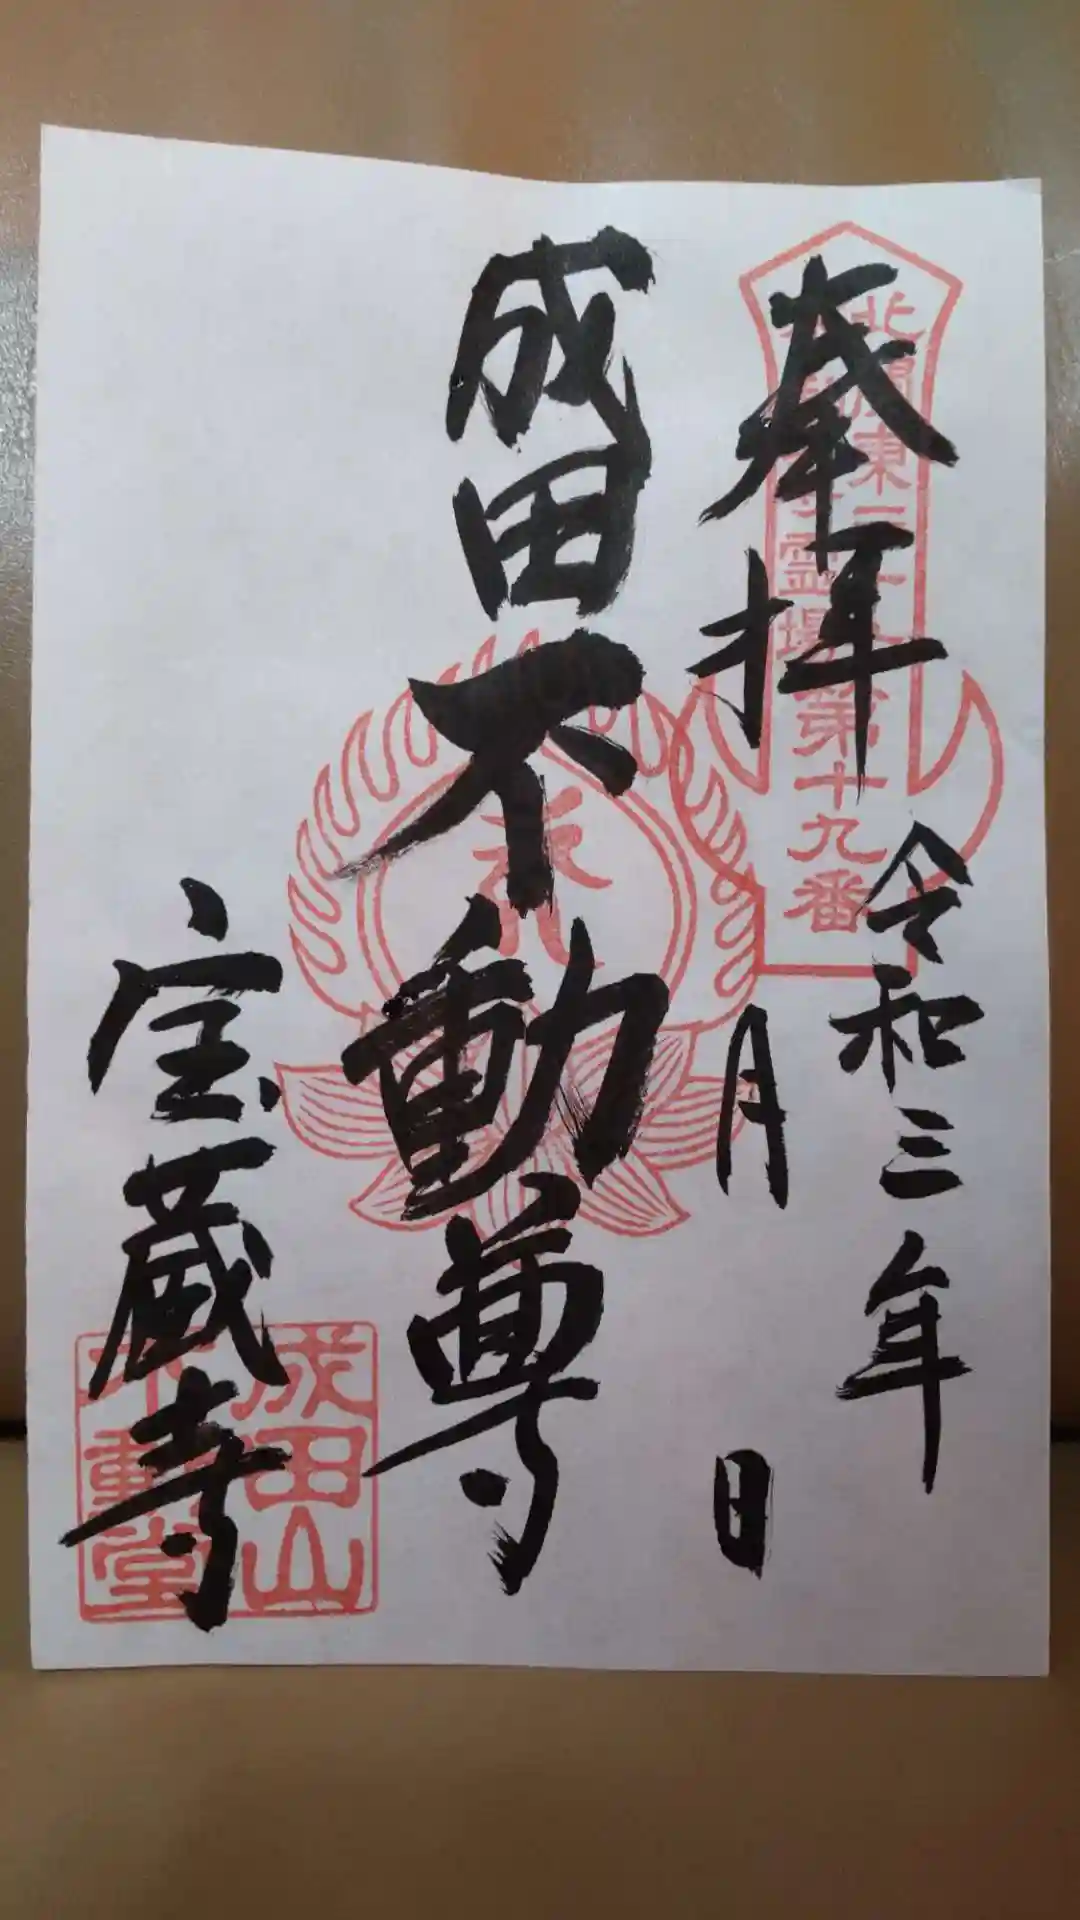 奉拝
北関東三十六
不動尊霊場第十九番
令和三年
月　日
成田不動尊
宝蔵寺
成田山
不動堂